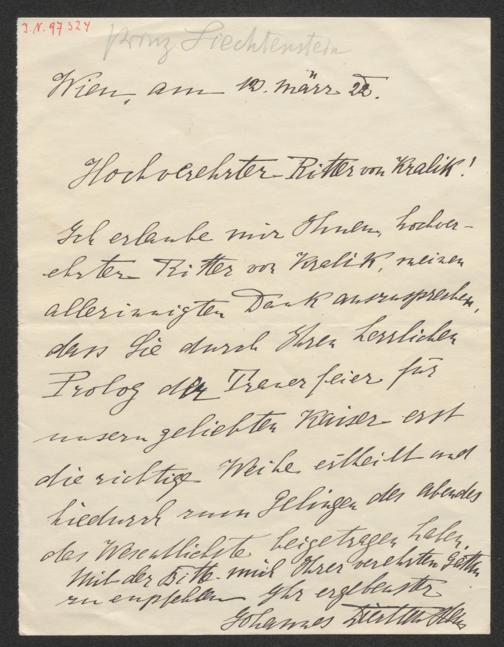 J.N. 97324
Prinz Liechtenstein
Wien, am 12. März 22.
Hochverehrter Ritter von Kralik!
Ich erlaube mir Ihnen, hochver-
ehrter Ritter von Kralik, meinen
allerinnigsten Dank auszusprechen,
dass Sie durch Ihren herrlichen
Prolog der Trauerfeier für
unsern geliebten Kaiser erst
die richtige Weihe ertheilt und
hiedurch zum Gelingen des Abends
das Wesentlichste beigetragen haben.
Mit der Bitte mich Ihrer verehrten Gattin
zu empfehlen Ihr ergebenster
Johannes Liechtenstein